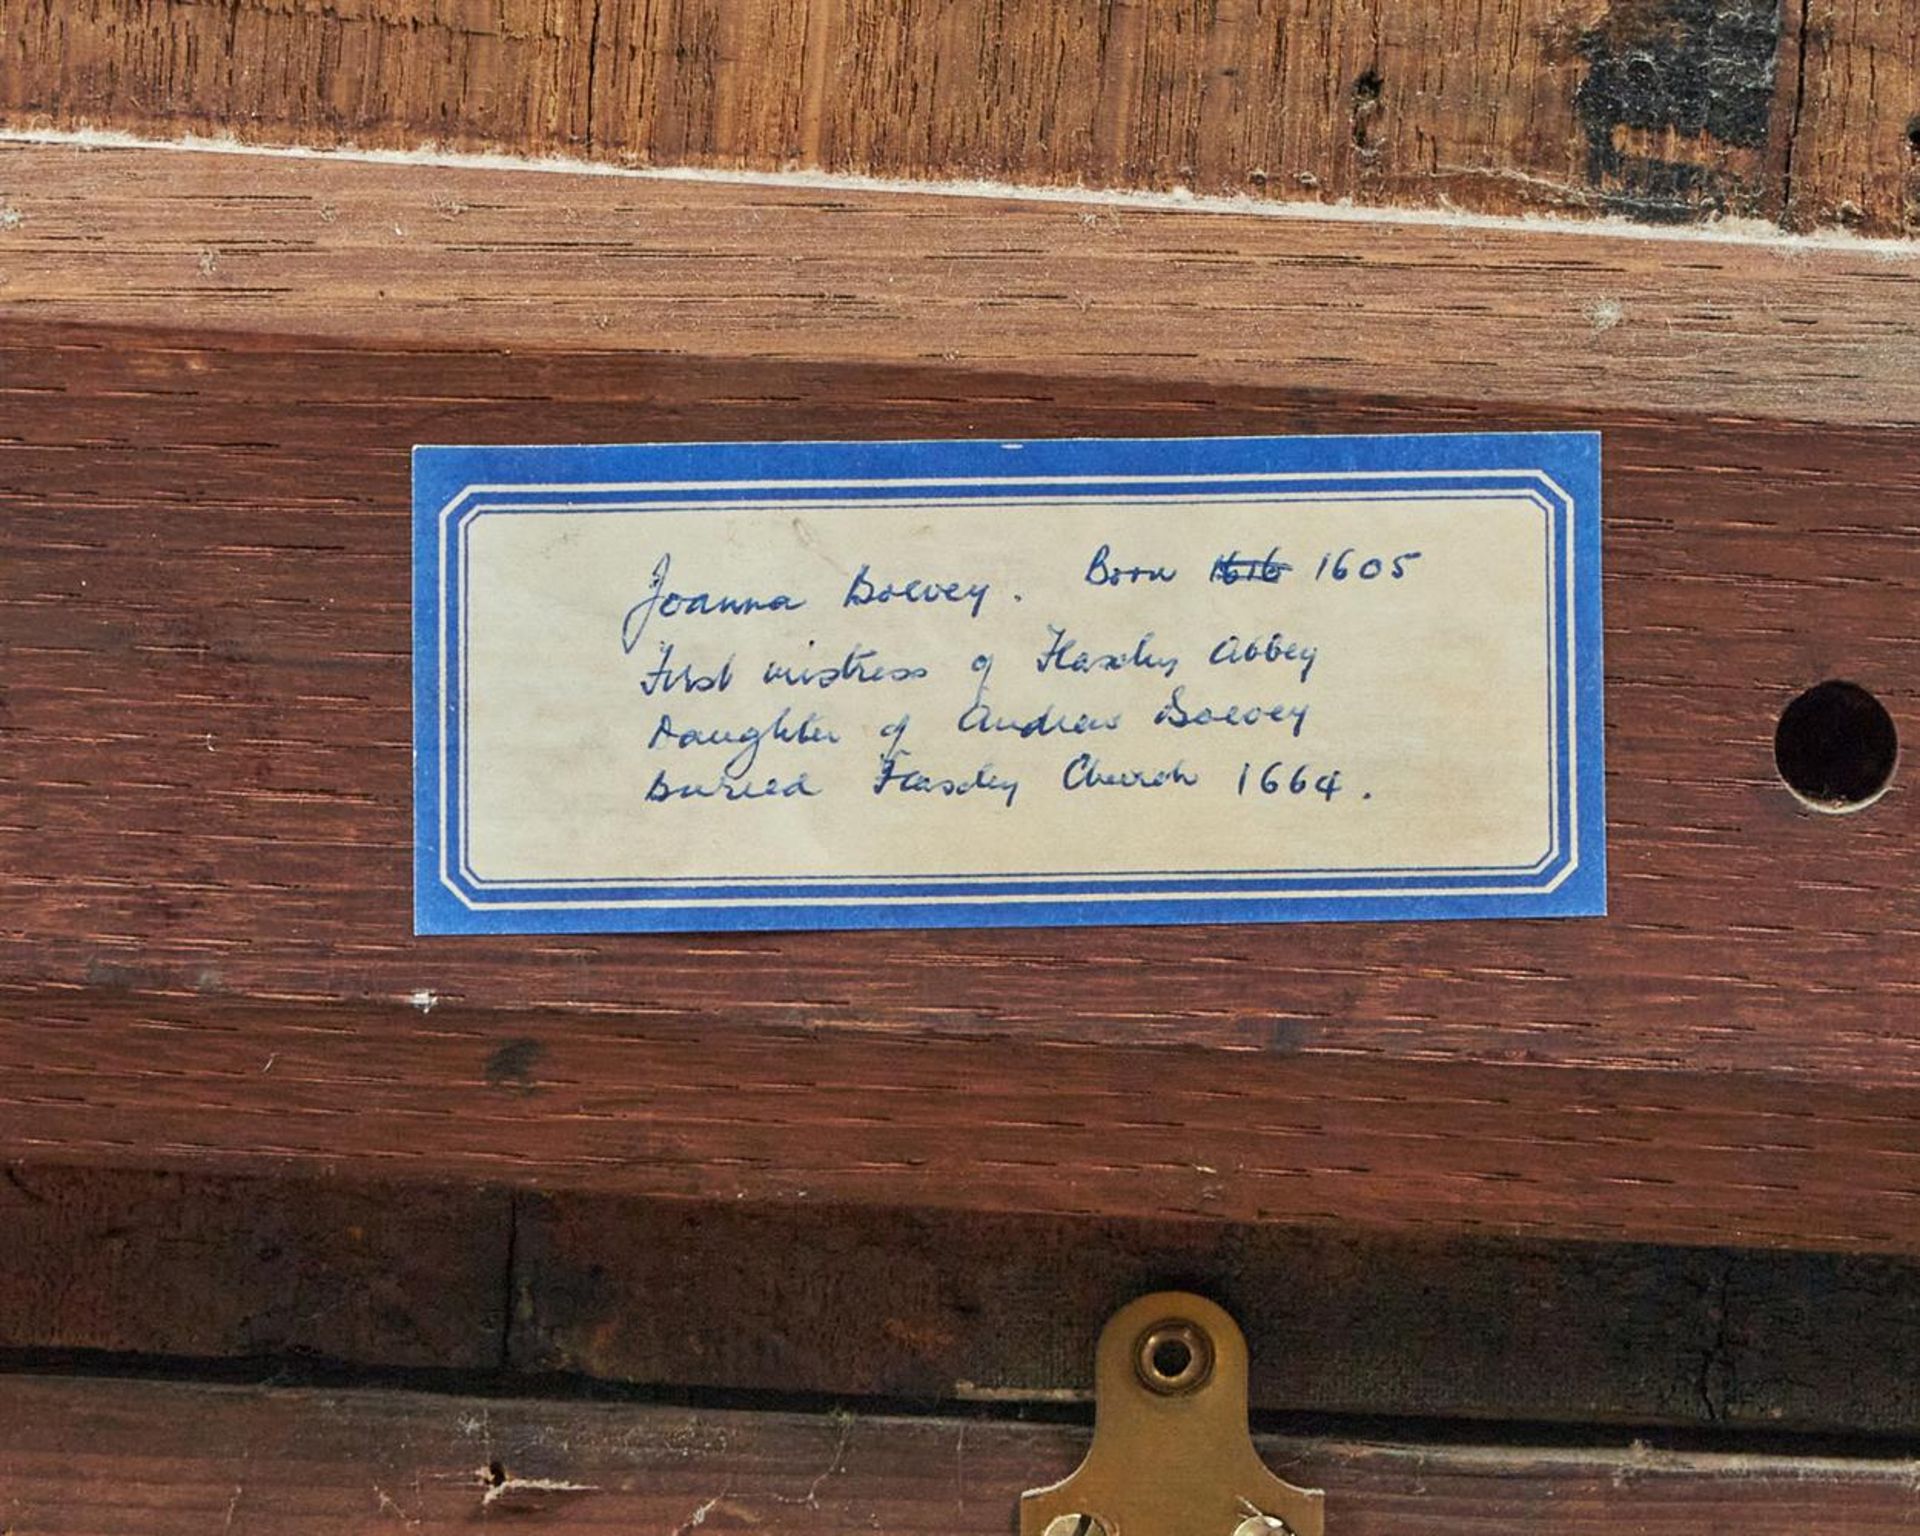 Joanna Boevey. Born 1616 1605
First mistress of Flaxley Abbey
Daughter of Andrew Boevey
Buried Flaxley Church 1664.